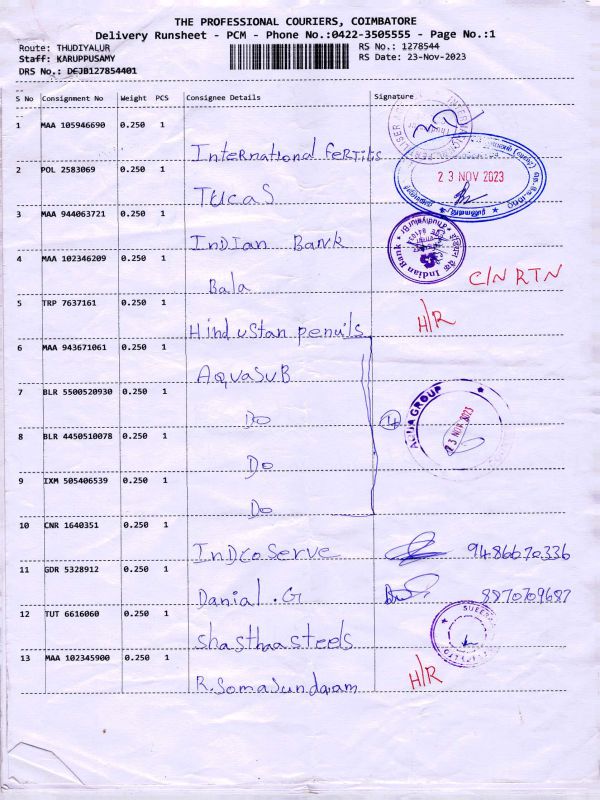 THE PROFESSIONAL COURIERS, COIMBATORE
Delivery Runsheet - PCM - Phone No.:0422-3505555 - Page No.:1
Route: THUDIYALUR
RS No.: 1278544
Staff: KARUPPUSAMY
RS Date: 23-Nov-2023
DRS No.: DEJB127854401
S No Consignment No Weight PCS Consignee Details Signature
1 MAA 105946690 0.250 1
International Fertilis
2 POL 2583069 0.250 1
23 NOV 2023
TUCAS
3 MAA 944063721 0.250 1
Indian Bank
Indian Bank
4 MAA 102346209 0.250 1
C/N RTN
Bala
5 TRP 7637161 0.250 1
H/R
Hindustan pencils
6 MAA 943671061 0.250 1
AQUASUB
7 BLR 5500520930 0.250 1
AQUA GROUP
Do
4
23 NOV 2023
8 BLR 4450510078 0.250 1
Do
9 IXM 505406539 0.250 1
Do
10 CNR 1640351 0.250 1
Indcoserve 9486670336
11 GDR 5328912 0.250 1
Danial.G 8870709687
12 TUT 6616060 0.250 1
shasthaasteels
13 MAA 102345900 0.250 1
H/R
R.Somasundaram